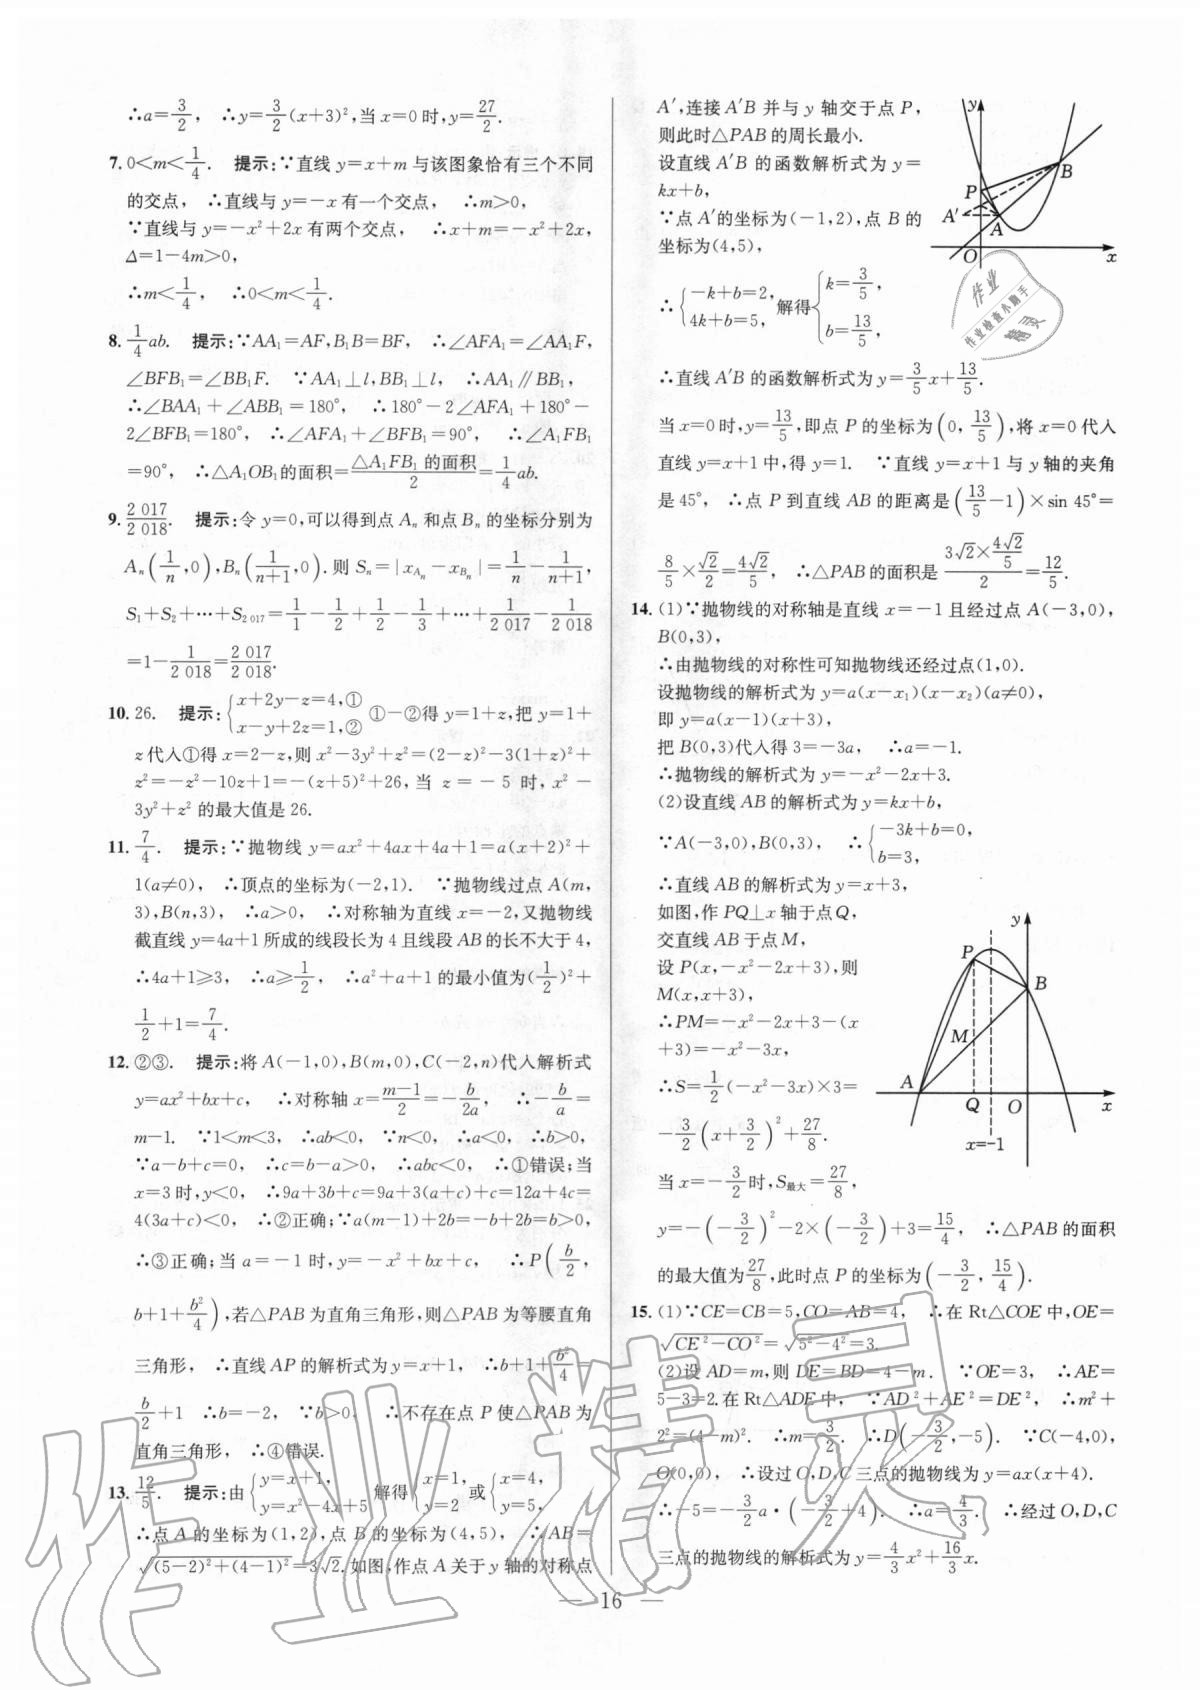 ∴a=3/2, ∴y=3/2(x+3)²,当 x=0 时,y=27/2.
7. 0<m<1/4. 提示:∵直线 y=x+m 与该图象恰有三个不同
的交点, ∴直线与 y=-x 有一个交点, ∴m>0,
∵直线与 y=-x²+2x 有两个交点, ∴x+m=-x²+2x,
Δ=1-4m>0,
∴m<1/4, ∴0<m<1/4.
8. 1/4 ab. 提示:∵AA₁=AF,B₁B=BF, ∴∠AFA₁=∠AA₁F,
∠BFB₁=∠BB₁F. ∵AA₁⊥l,BB₁⊥l, ∴AA₁∥BB₁,
∴∠BAA₁+∠ABB₁=180°, ∴180°-2∠AFA₁+180°-
2∠BFB₁=180°, ∴∠AFA₁+∠BFB₁=90°, ∴∠A₁FB₁
=90°, ∴△A₁OB₁的面积=△A₁FB₁的面积/2=1/4 ab.
9. 2 017/2 018. 提示:令 y=0,可以得到点 Aₙ 和点 Bₙ 的坐标分别为
Aₙ(1/n,0),Bₙ(1/(n+1),0).则 Sₙ=|x_Aₙ-x_Bₙ|=1/n-1/(n+1),
S₁+S₂+…+S₂ ₀₁₇=1/1-1/2+1/2-1/3+…+1/2 017-1/2 018
=1-1/2 018=2 017/2 018.
10. 26. 提示:{x+2y-z=4,① x-y+2z=1,② ①-②得 y=1+z,把 y=1+
z 代入①得 x=2-z,则 x²-3y²+z²=(2-z)²-3(1+z)²+
z²=-z²-10z+1=-(z+5)²+26,当 z=-5 时,x²-
3y²+z² 的最大值是 26.
11. 7/4. 提示:∵抛物线 y=ax²+4ax+4a+1=a(x+2)²+
1(a≠0), ∴顶点的坐标为(-2,1). ∵抛物线过点 A(m,
3),B(n,3), ∴a>0, ∴对称轴为直线 x=-2,又抛物线
截直线 y=4a+1 所成的线段长为 4 且线段 AB 的长不大于 4,
∴4a+1≥3, ∴a≥1/2, ∴a²+a+1 的最小值为(1/2)²+
1/2+1=7/4.
12. ②③. 提示:将 A(-1,0),B(m,0),C(-2,n)代入解析式
y=ax²+bx+c, ∴对称轴 x=(m-1)/2=-b/2a, ∴-b/a=
m-1. ∵1<m<3, ∴ab<0, ∵n<0, ∴a<0, ∴b>0,
∵a-b+c=0, ∴c=b-a>0, ∴abc<0, ∴①错误;当
x=3 时,y<0, ∴9a+3b+c=9a+3(a+c)+c=12a+4c=
4(3a+c)<0, ∴②正确;∵a(m-1)+2b=-b+2b=b>0,
∴③正确;当 a=-1 时,y=-x²+bx+c, ∴P(b/2,
b+1+b²/4),若△PAB 为直角三角形,则△PAB 为等腰直角
三角形, ∴直线 AP 的解析式为 y=x+1, ∴b+1+b²/4=
b/2+1 ∴b=-2, ∵b>0, ∴不存在点 P 使△PAB 为
直角三角形, ∴④错误.
13. 12/5. 提示:由{y=x+1, y=x²-4x+5 解得{x=1, y=2 或{x=4, y=5,
∴点 A 的坐标为(1,2),点 B 的坐标为(4,5), ∴AB=
√((5-2)²+(4-1)²)=3√2.如图,作点 A 关于 y 轴的对称点
A′,连接 A′B 并与 y 轴交于点 P,
则此时△PAB 的周长最小.
设直线 A′B 的函数解析式为 y=
kx+b,
∵点 A′的坐标为(-1,2),点 B 的
坐标为(4,5),
∴{-k+b=2, 4k+b=5, 解得{k=3/5, b=13/5,
y
B
P
A′
A
O
x
作业
作业检查小助手
精灵
∴直线 A′B 的函数解析式为 y=3/5 x+13/5.
当 x=0 时,y=13/5,即点 P 的坐标为(0,13/5),将 x=0 代入
直线 y=x+1 中,得 y=1. ∵直线 y=x+1 与 y 轴的夹角
是 45°, ∴点 P 到直线 AB 的距离是(13/5-1)×sin 45°=
8/5×√2/2=4√2/5, ∴△PAB 的面积是(3√2×4√2/5)/2=12/5.
14. (1)∵抛物线的对称轴是直线 x=-1 且经过点 A(-3,0),
B(0,3),
∴由抛物线的对称性可知抛物线还经过点(1,0).
设抛物线的解析式为 y=a(x-x₁)(x-x₂)(a≠0),
即 y=a(x-1)(x+3),
把 B(0,3)代入得 3=-3a, ∴a=-1.
∴抛物线的解析式为 y=-x²-2x+3.
(2)设直线 AB 的解析式为 y=kx+b,
∵A(-3,0),B(0,3), ∴{-3k+b=0, b=3,
∴直线 AB 的解析式为 y=x+3,
如图,作 PQ⊥x 轴于点 Q,
交直线 AB 于点 M,
设 P(x,-x²-2x+3),则
M(x,x+3),
∴PM=-x²-2x+3-(x
+3)=-x²-3x,
∴S=1/2(-x²-3x)×3=
-3/2(x+3/2)²+27/8.
y
P
B
M
A
Q
O
x
x=-1
当 x=-3/2 时,S最大=27/8,
y=-(-3/2)²-2×(-3/2)+3=15/4, ∴△PAB 的面积
的最大值为 27/8,此时点 P 的坐标为(-3/2,15/4).
15. (1)∵CE=CB=5,CO=AB=4, ∴在 Rt△COE 中,OE=
√(CE²-CO²)=√(5²-4²)=3.
(2)设 AD=m,则 DE=BD=4-m. ∵OE=3, ∴AE=
5-3=2.在 Rt△ADE 中, ∵AD²+AE²=DE², ∴m²+
2²=(4-m)². ∴m=3/2. ∴D(-3/2,-5). ∵C(-4,0),
O(0,0), ∴设过 O,D,C 三点的抛物线为 y=ax(x+4).
∴-5=-3/2 a·(-3/2+4). ∴a=4/3. ∴经过 O,D,C
三点的抛物线的解析式为 y=4/3 x²+16/3 x.
— 16 —
作业精灵